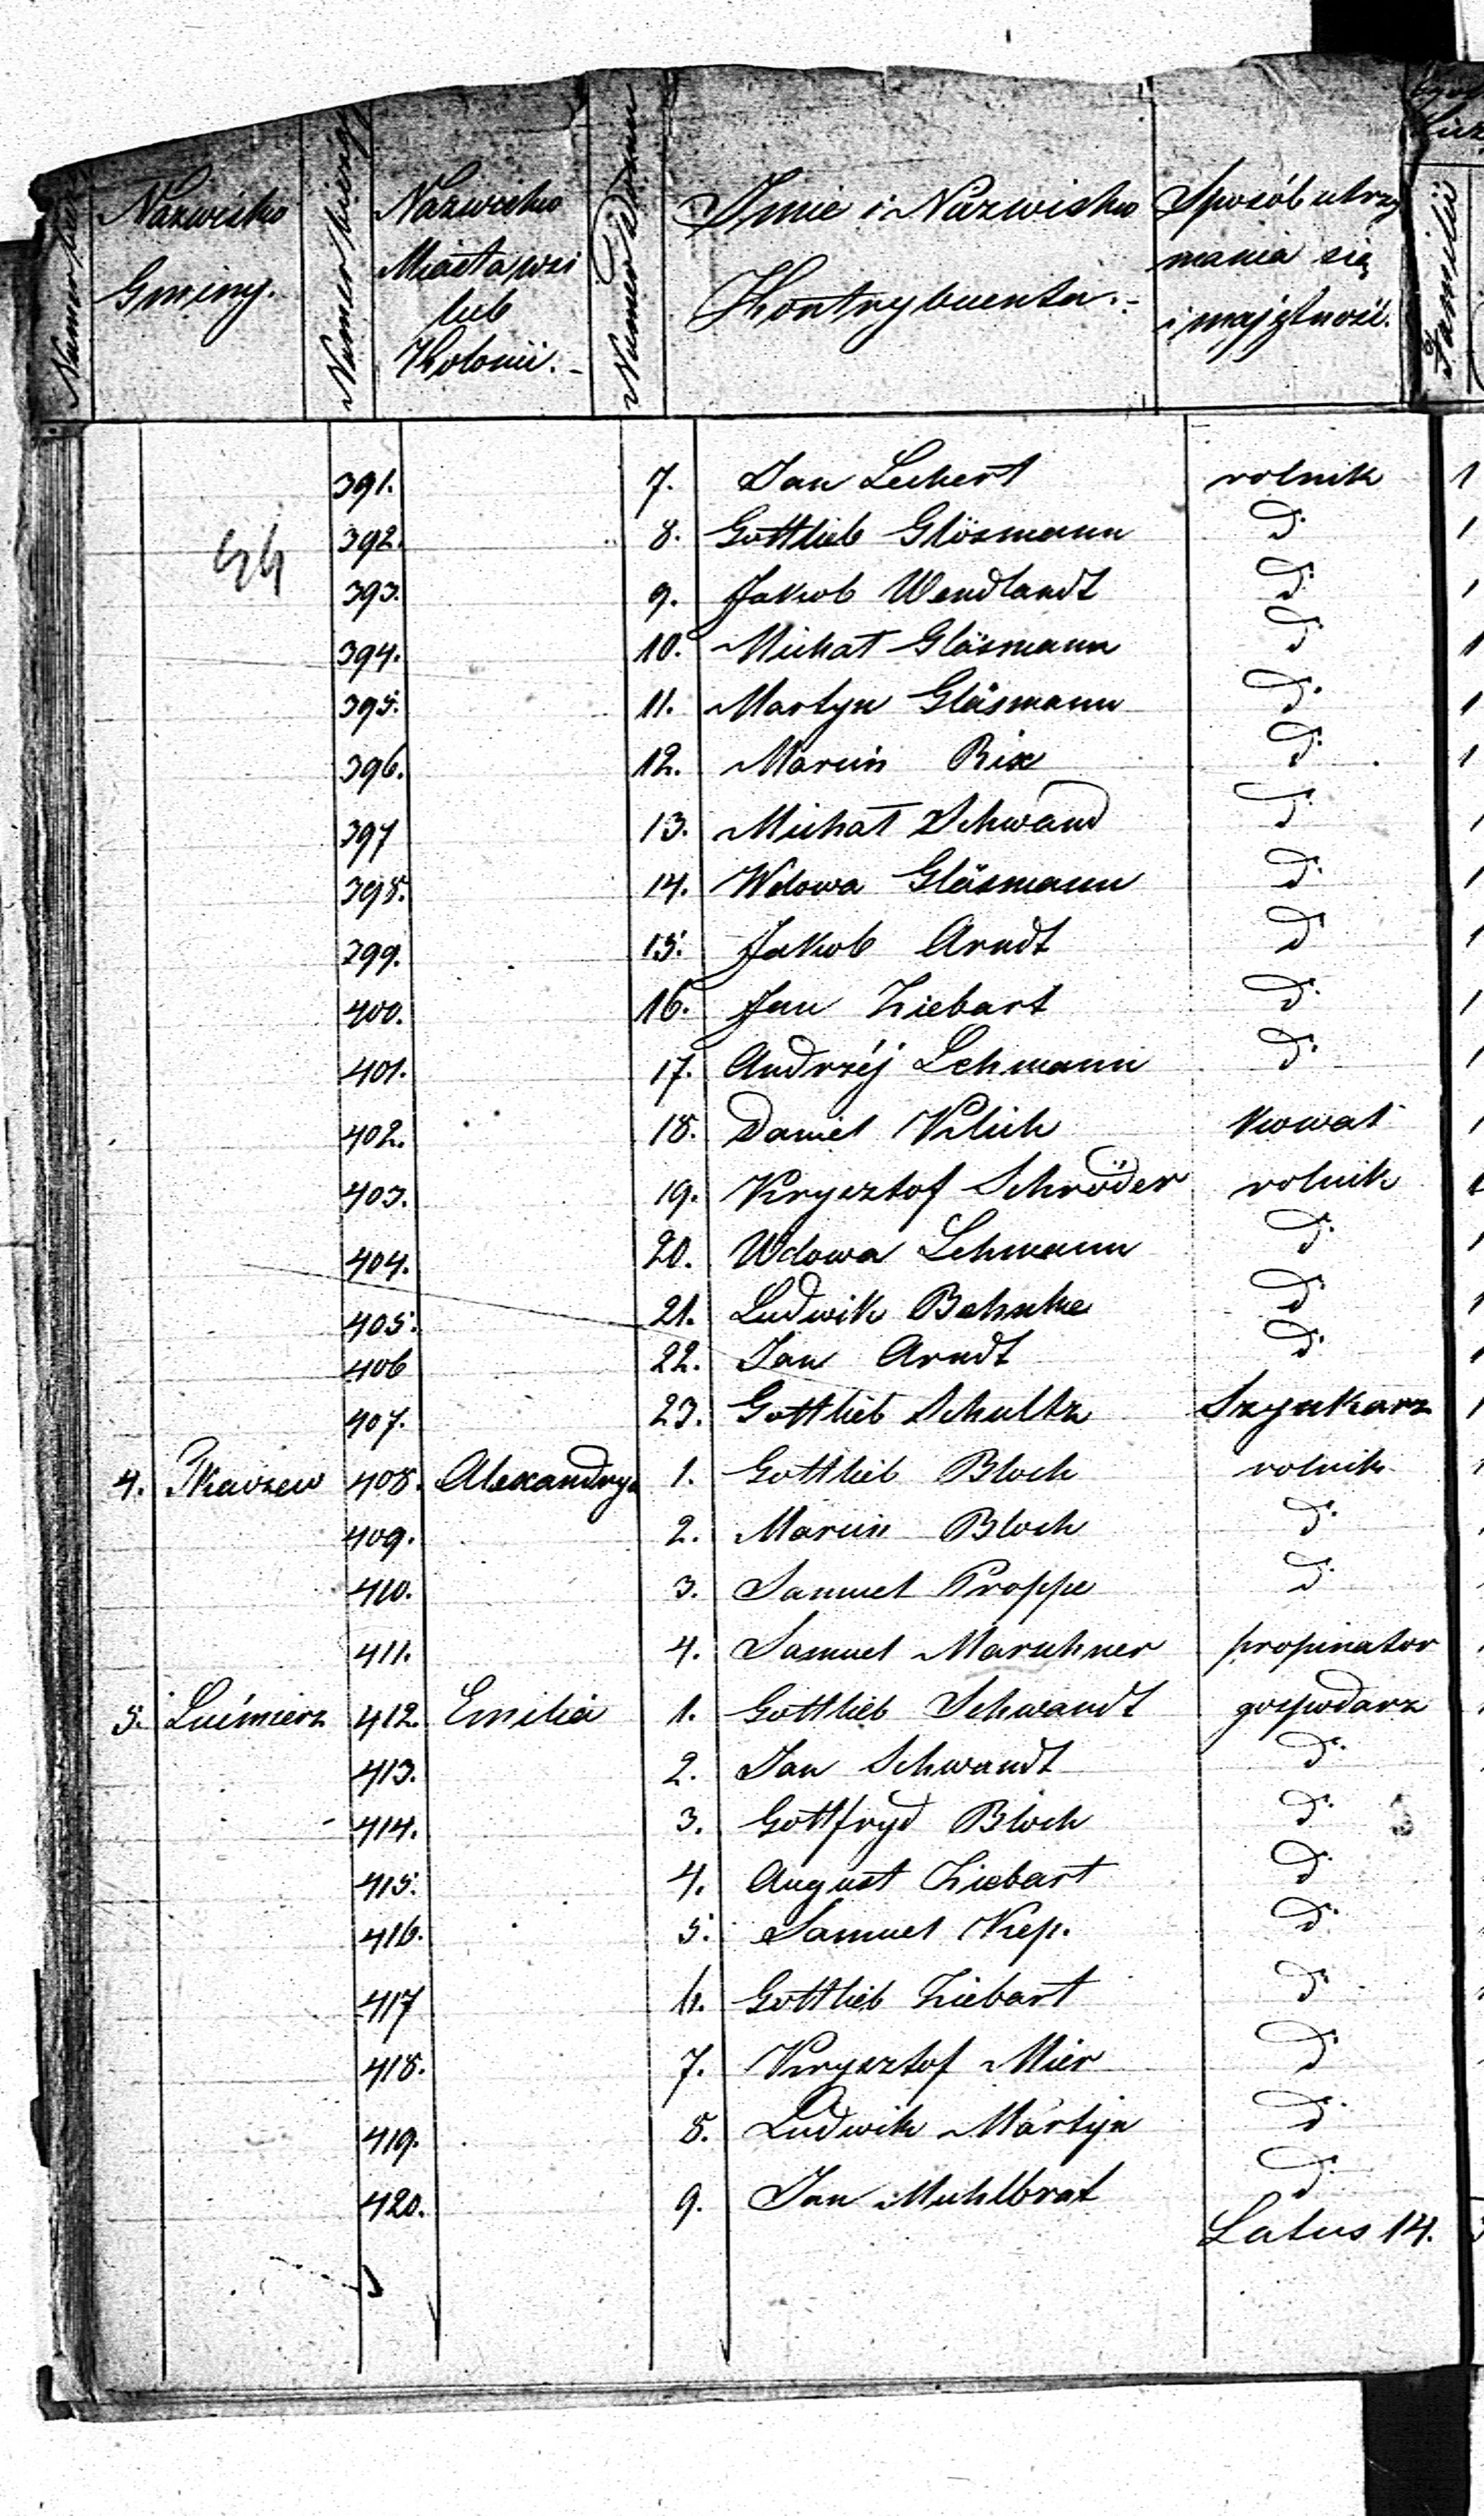 Nazwisko Gminy.
Numer bieżący
Nazwisko Miasta, wsi lub Kolonii.-
Numer Domu
Imie i Nazwisko Kontrybuenta.-
Sposób utrzy
mania się
i majętność.
Familii
391. 7. Jan Lechert rolnik 1
392. 8. Gottlieb Glösmann d. 1
393. 9. Jakob Wendlandt d. 1
394. 10. Michał Gläsmann d 1
395. 11. Martyn Gläsmann d. 1
396. 12. Marcin Rix d. 1
397 13. Michał Schwand d. 1
398. 14. Wdowa Gläsmann d. 1
399. 15. Jakob Arndt d 1
400. 16. Jan Ziebart d. 1
401. 17. Andrzéj Lehmann d. 1
402. 18. Daniel Klich Kowal 1
403. 19. Krysztof Schröder rolnik 1
404. 20. Wdowa Lehmann d. 1
405. 21. Ludwik Behnke d 1
406 22. Jan Arndt d. 1
407. 23. Gottlieb Schultz Szynkarz 1
4. 408. Alexandrya 1. Gottlieb Bloch rolnik 1
409. 2. Marcin Bloch d.
410. 3. Samuel Proppe d.
411. 4. Samuel Maruhner propinator
5. Lućmierz 412. Emilia 1. Gottlieb Schwandt gospodarz
413. 2. Jan Schwandt d.
414. 3. Gottfryd Bloch d.
415. 4. August Ziebart d.
416. 5. Samuel Kep. d.
417 6. Gottlieb Ziebart d.
418. 7. Krysztof Mier d.
419. 8. Ludwik Martyn d.
420. 9. Jan Muhlbrat d.
Latus 14.